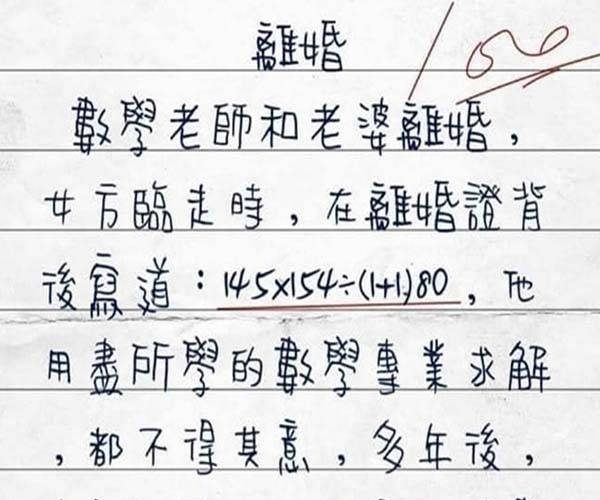 離婚
100
數學老師和老婆離婚，
女方臨走時，在離婚證背
後寫道：145×154÷(1+1)80，他
用盡所學的數學專業求解
，都不得其意，多年後，